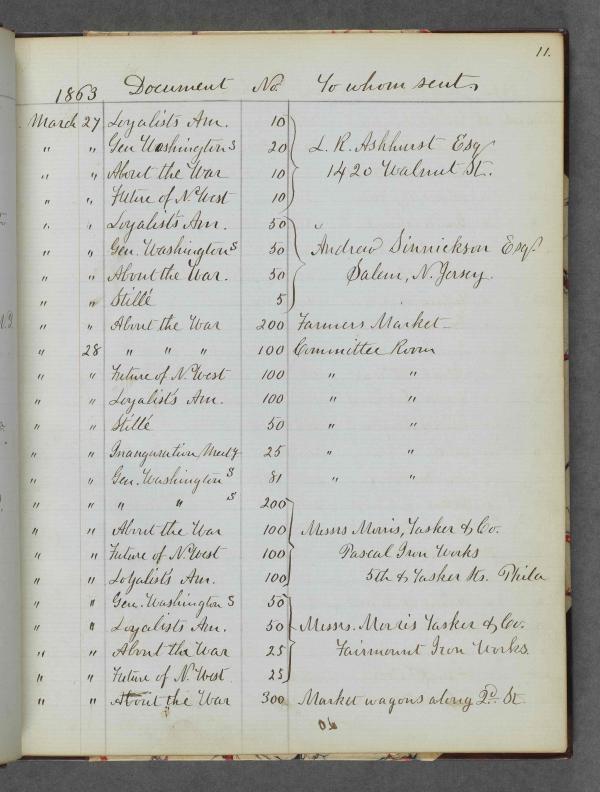 11.
1863 Document No. To whom sent
March 27 Loyalists Am. 10
" " Gen Washingtons 20 L. R. Ashhurst Esq
" " About the War 10 1420 Walnut St.
" " Future of N. West 10
" " Loyalist's Am. 50
" " Gen. Washingtons 50 Andrew Sinnickson Esq.
" " About the War. 50 Salem, N. Jersey.
" " Stillé 5
" " About the War 200 Farmers Market
" 28 " " " 100 Committee Room
" " Future of N. West 100 " "
" " Loyalist's Am. 100 " "
" " Stillé 50 " "
" " Inauguration Meetg 25 " "
" " Gen. Washington s 81 " "
" " " " s 200
" " About the War 100 Messrs Morris, Tasker & Co.
" " Future of N. West 100 Pascal Iron Works
" " Loyalist's Am. 100 5th & Tasker Sts. Phila
" " Gen. Washington s 50
" " Loyalists Am. 50 Messrs. Morris Tasker & Co.
" " About the War 25 Fairmount Iron Works.
" " Future of N. West. 25
" " About the War 300 Market wagons along 2d. St.